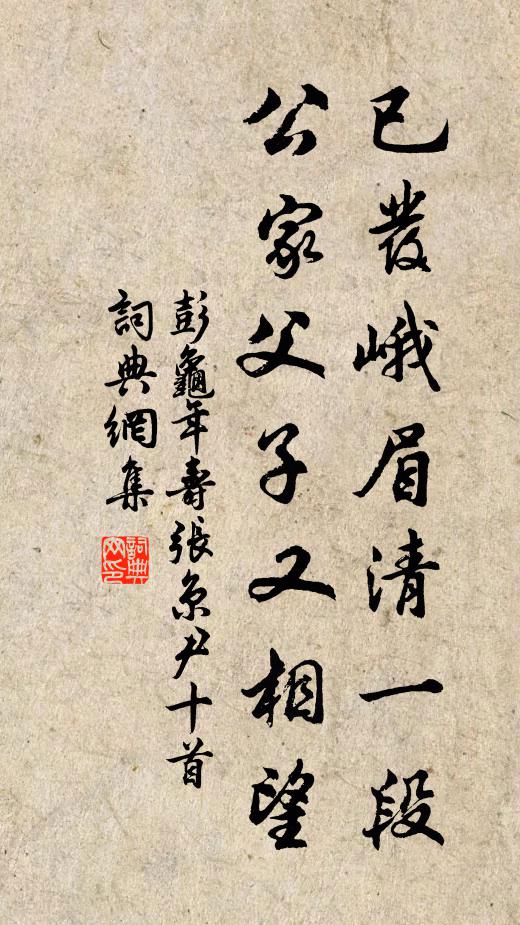 已發峨眉清一段
公家父子又相望
彭龜年壽張京尹十首
詞典網集
詞典網印